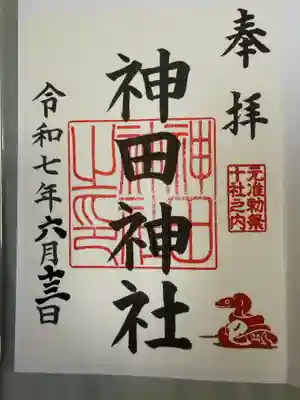 奉拝
元准勅祭
十社之内
神田神社
神田
神社
之印
令和七年六月十三日